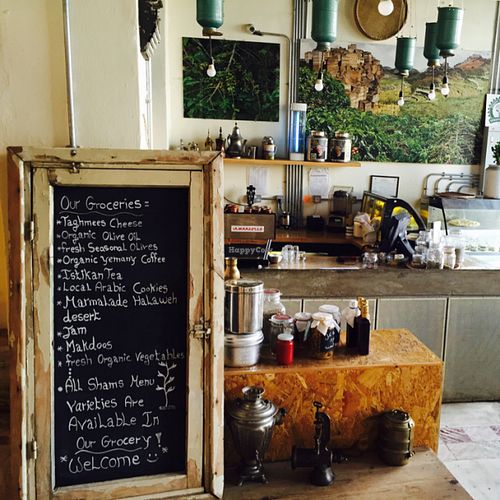 Our Groceries =
*Taghmees Cheese
*Organic Olive Oil
*fresh Seasonal Olives
*Organic yemany Coffee
*Istikan Tea
*Local Arabic Cookies
*Marmalade Halaweh
desert
*Jam
*Makdoos
*fresh Organic Vegetables
All Shams Menu
Varieties Are
Available In
Our Grocery!
*Welcome
HappyCo